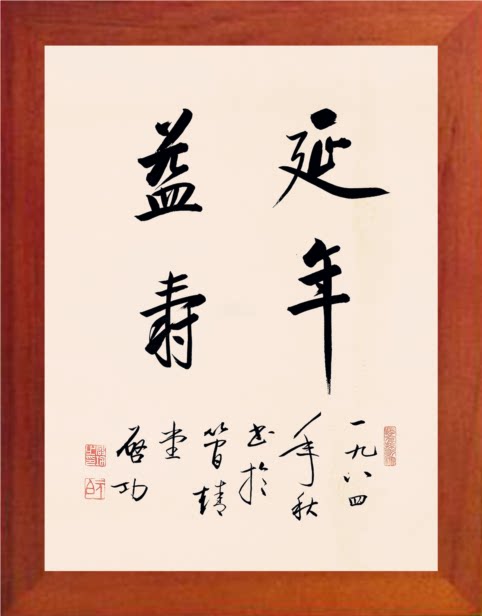 延年
益寿
一九八四
年秋
书於
简靖
堂
启功